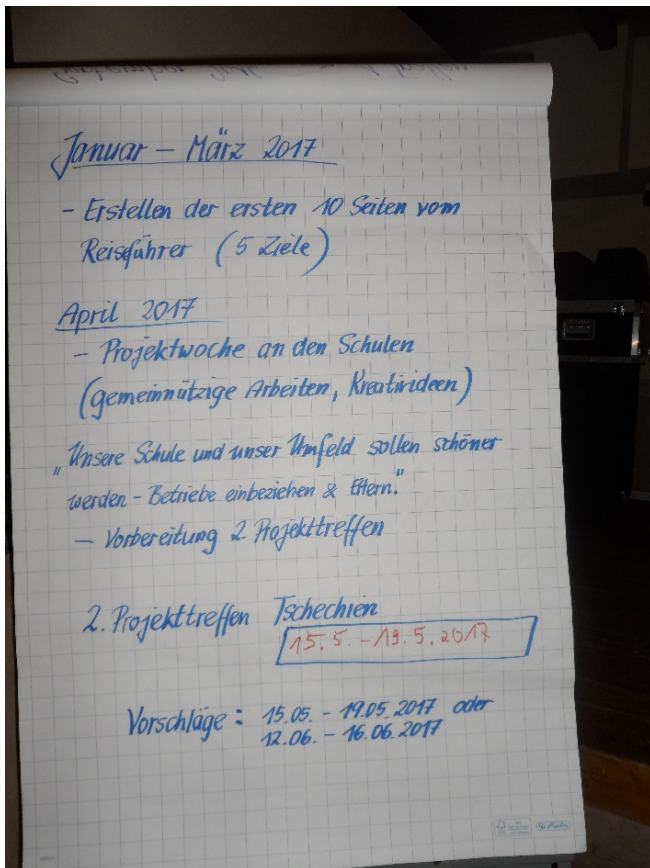 Januar – März 2017
- Erstellen der ersten 10 Seiten vom
Reiseführer (5 Ziele)
April 2017
- Projektwoche an den Schulen
(gemeinnützige Arbeiten, Kreativideen)
„Unsere Schule und unser Umfeld sollen schöner
werden - Betriebe einbeziehen & Eltern."
- Vorbereitung 2. Projekttreffen
2. Projekttreffen Tschechien
15.5. - 19.5.2017
Vorschläge: 15.05. - 19.05.2017 oder
12.06. - 16.06.2017